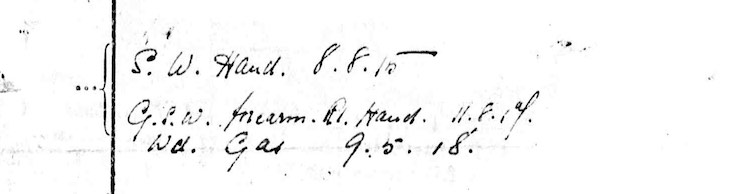 S. W. Hand. 8.8.15
G.S.W. forearm. Rt. Hand. 11.8.17.
Wd. Gas 9.5.18.